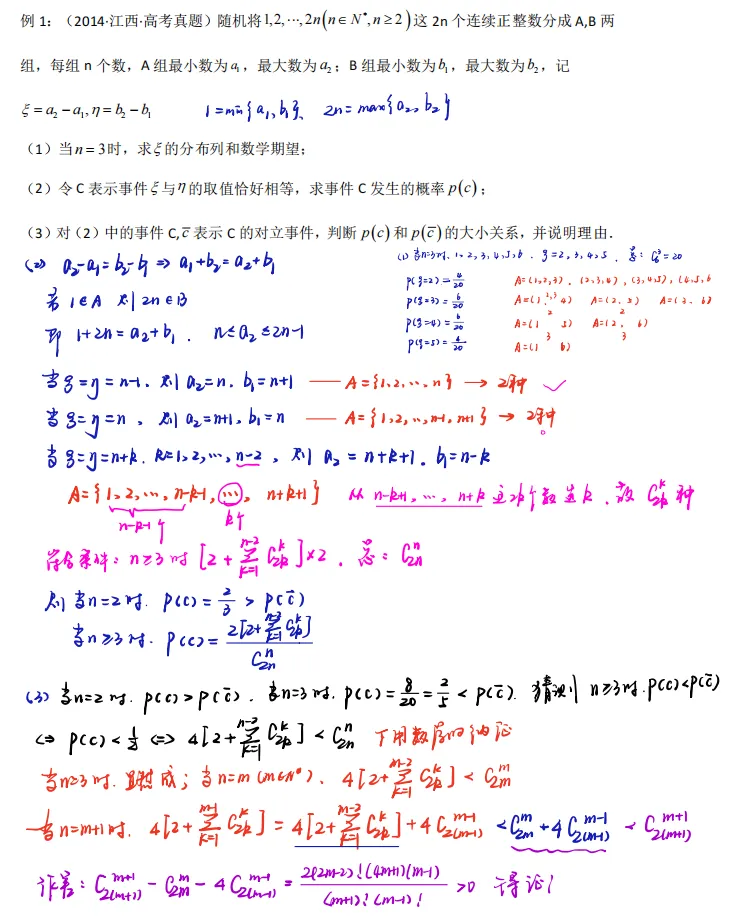 例 1：（2014·江西·高考真题）随机将1,2,⋯,2n(n∈N*,n≥2)这 2n 个连续正整数分成 A,B 两
组，每组 n 个数，A 组最小数为a₁，最大数为a₂；B 组最小数为b₁，最大数为b₂，记
ξ=a₂-a₁,η=b₂-b₁ 1=min{a₁,b₁}, 2n=max{a₂,b₂}
（1）当n=3时，求ξ的分布列和数学期望；
（2）令 C 表示事件ξ与η的取值恰好相等，求事件 C 发生的概率p(c)；
（3）对（2）中的事件 C,c̅表示 C 的对立事件，判断p(c)和p(c̅)的大小关系，并说明理由.
(1) 当n=3时、1、2、3、4、5、6 . ξ=2、3、4、5 . 总：C₆³=20
P(ξ=2)=4/20 A=(1,2,3), (2,3,4), (3,4,5), (4,5,6
P(ξ=3)=6/20 A=(1, 2,3 4) A=(2, 5) A=(3, 6)
P(ξ=4)=6/20 A=(1 2 3 5) A=(2, 6)
P(ξ=5)=4/20 A=(1 6)
(2) a₂-a₁=b₂-b₁ ⇒ a₁+b₂=a₂+b₁
若 1∈A 则 2n∈B
即 1+2n=a₂+b₁ . n≤a₂≤2n-1
当ξ=η=n-1. 则 a₂=n. b₁=n+1 —— A={1,2,…,n} → 2种 ✓
当ξ=η=n , 则 a₂=n+1, b₁=n —— A={1,2,…,n-1,n+1} → 2种
当ξ=η=n+k. k=1,2,…,n-2 , 则 a₂=n+k+1. b₁=n-k
A={1,2,…,n-k-1,(…), n+k+1} 从 n-k+1,…,n+k 这2k个数选k , 故 C₂ₖᵏ 种
n-k-1个 k个
符合条件：n≥3时 [2+∑ₖ₌₁ⁿ⁻² C₂ₖᵏ]×2 . 总：C₂ₙⁿ
则 当n=2时. P(C)=2/3 > P(C̅)
当n≥3时. P(C)=2[2+∑ₖ₌₁ⁿ⁻² C₂ₖᵏ]/C₂ₙⁿ
(3) 当n=2时. P(C)>P(C̅) . 当n=3时. P(C)=8/20=2/5<P(C̅). 猜测 n≥3时.P(C)<P(C̅)
⇔ P(C)<1/2 ⇔ 4[2+∑ₖ₌₁ⁿ⁻² C₂ₖᵏ]<C₂ₙⁿ 下用数学归纳证
当n=3时. 显然成；当n=m (m∈N*). 4[2+∑ₖ₌₁ᵐ⁻² C₂ₖᵏ]<C₂ₘᵐ
当n=m+1时. 4[2+∑ₖ₌₁ᵐ⁻¹ C₂ₖᵏ]=4[2+∑ₖ₌₁ᵐ⁻² C₂ₖᵏ]+4C₂₍ₘ₋₁₎ᵐ⁻¹<C₂ₘᵐ+4C₂₍ₘ₋₁₎ᵐ⁻¹<C₂₍ₘ₊₁₎ᵐ⁺¹
作差：C₂₍ₘ₊₁₎ᵐ⁺¹-C₂ₘᵐ-4C₂₍ₘ₋₁₎ᵐ⁻¹=2(2m-2)!(4m+1)(m-1)/(m+1)!(m-1)!>0 得证！